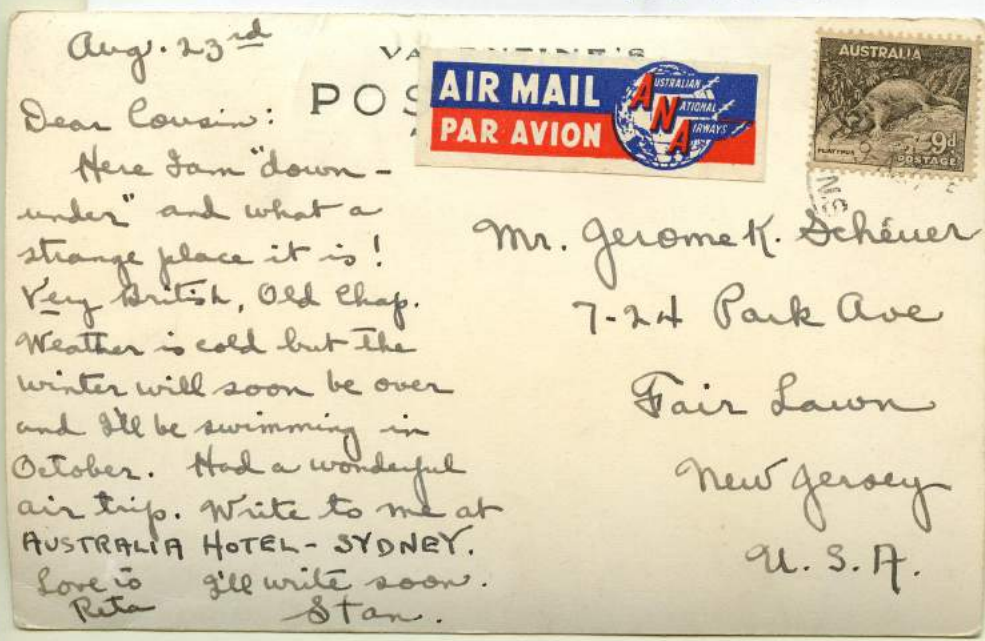 Aug. 23rd
Dear Cousin:
Here I am "down-
under" and what a
strange place it is!
Very British, Old Chap.
Weather is cold but the
winter will soon be over
and I'll be swimming in
October. Had a wonderful
air trip. Write to me at
AUSTRALIA HOTEL - SYDNEY.
Love to I'll write soon.
Reta Stan.
POS
AIR MAIL
PAR AVION
AUSTRALIAN
NATIONAL
AIRWAYS
AUSTRALIA
PLATYPUS
9d
POSTAGE
Mr. Jerome K. Scheuer
7-24 Park Ave
Fair Lawn
New Jersey
U. S. A.